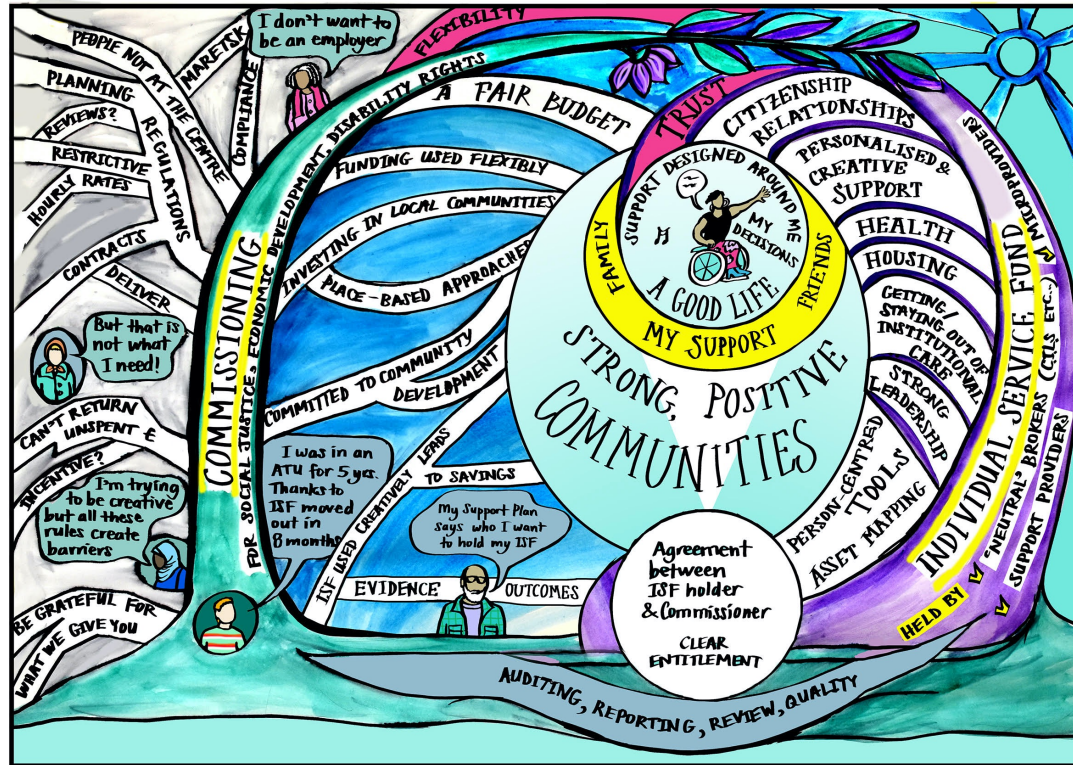 PEOPLE NOT AT THE CENTRE
MARETSK
COMPLIANCE
PLANNING
REVIEWS?
REGULATIONS
RESTRICTIVE
HOURLY RATES
CONTRACTS
DELIVER
I don't want to
be an employer
But that is
not what
I need!
CAN'T RETURN
UNSPENT £
INCENTIVE?
I'm trying
to be creative
but all these
rules create
barriers
BE GRATEFUL FOR
WHAT WE GIVE YOU
COMMISSIONING
FOR SOCIAL JUSTICE, ECONOMIC DEVELOPMENT, DISABILITY RIGHTS
FLEXIBILITY
TRUST
A FAIR BUDGET
FUNDING USED FLEXIBLY
INVESTING IN LOCAL COMMUNITIES
PLACE-BASED APPROACHES
COMMITTED TO COMMUNITY
DEVELOPMENT
ISF USED CREATIVELY LEADS
TO SAVINGS
EVIDENCE
OUTCOMES
I was in an
ATU for 5 yrs.
Thanks to
ISF moved
out in
8 months
My Support Plan
says who I want
to hold my ISF
SUPPORT DESIGNED AROUND ME
MY
DECISIONS
A GOOD LIFE
FAMILY
MY SUPPORT
FRIENDS
STRONG, POSITIVE
COMMUNITIES
Agreement
between
ISF holder
& Commissioner
CLEAR
ENTITLEMENT
CITIZENSHIP
RELATIONSHIPS
PERSONALISED &
CREATIVE
SUPPORT
HEALTH
HOUSING
GETTING/
STAYING OUT OF
INSTITUTIONAL
CARE
STRONG
LEADERSHIP
PERSON-CENTRED
TOOLS
ASSET MAPPING
INDIVIDUAL SERVICE FUND
HELD BY
MICROPROVIDERS
"NEUTRAL" BROKERS (CILS ETC...)
SUPPORT PROVIDERS
AUDITING, REPORTING, REVIEW, QUALITY